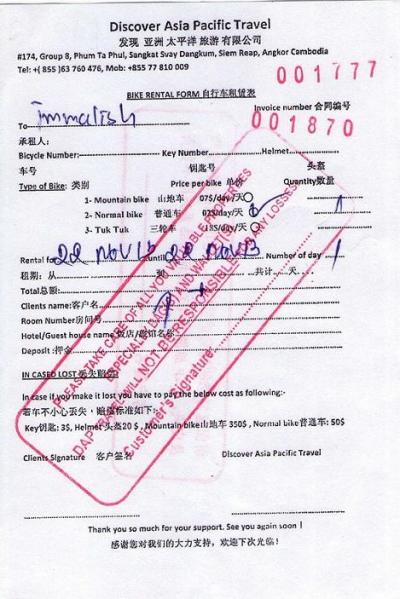 Discover Asia Pacific Travel
发现 亚洲 太平洋 旅游 有限公司
#174, Group 8, Phum Ta Phul, Sangkat Svay Dangkum, Siem Reap, Angkor Cambodia
Tel: +( 855 )63 760 476, Mob: +855 77 810 009
001777
BIKE RENTAL FORM 自行车租赁表
Invoice number 合同编号
001870
To
承租人:
Bicycle Number: Key Number Helmet
车号 钥匙号 头盔
Type of Bike: 类别 Price per bike 单价 Quantity数量
1- Mountain bike 山地车 07$/day/天
2- Normal bike 普通车 02$/day/天 1
3- Tuk Tuk 三轮车 /day/天
Rental for 22 NOV 13 until 22 NOV 13 Number of day 1
租期: 从 到 共计 天
Total总额:
Clients name:客户名
Room Number房间号
Hotel/Guest house name饭店/
Deposit :押金
IN CASED LOST 丢失赔偿
In case if you make it lost you have to pay the below cost as following:-
若车不小心丢失, 赔偿标准如下:
Key钥匙: 3$, Helmet头盔20 $ , Mountain bike山地车 350$ , Normal bike普通车: 50$
PLEASE TAKE CARE OF ALL YOUR VALUABLE PROPERTIES
DAP TRAVEL WILL NOT BE RESPONSIBLE FOR ANY LOSSES
Customer's Signature
Clients Signature 客户签名 Discover Asia Pacific Travel
Thank you so much for your support. See you again soon !
感谢您对我们的大力支持, 欢迎下次光临!